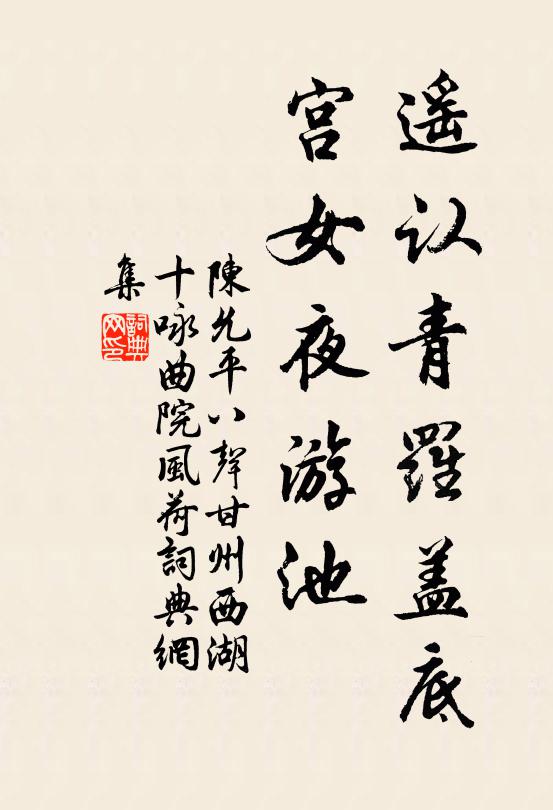 遥认青羅盖底
宫女夜游池
陳允平八聲甘州西湖
十咏曲院風荷詞典網
集
詞典
网印